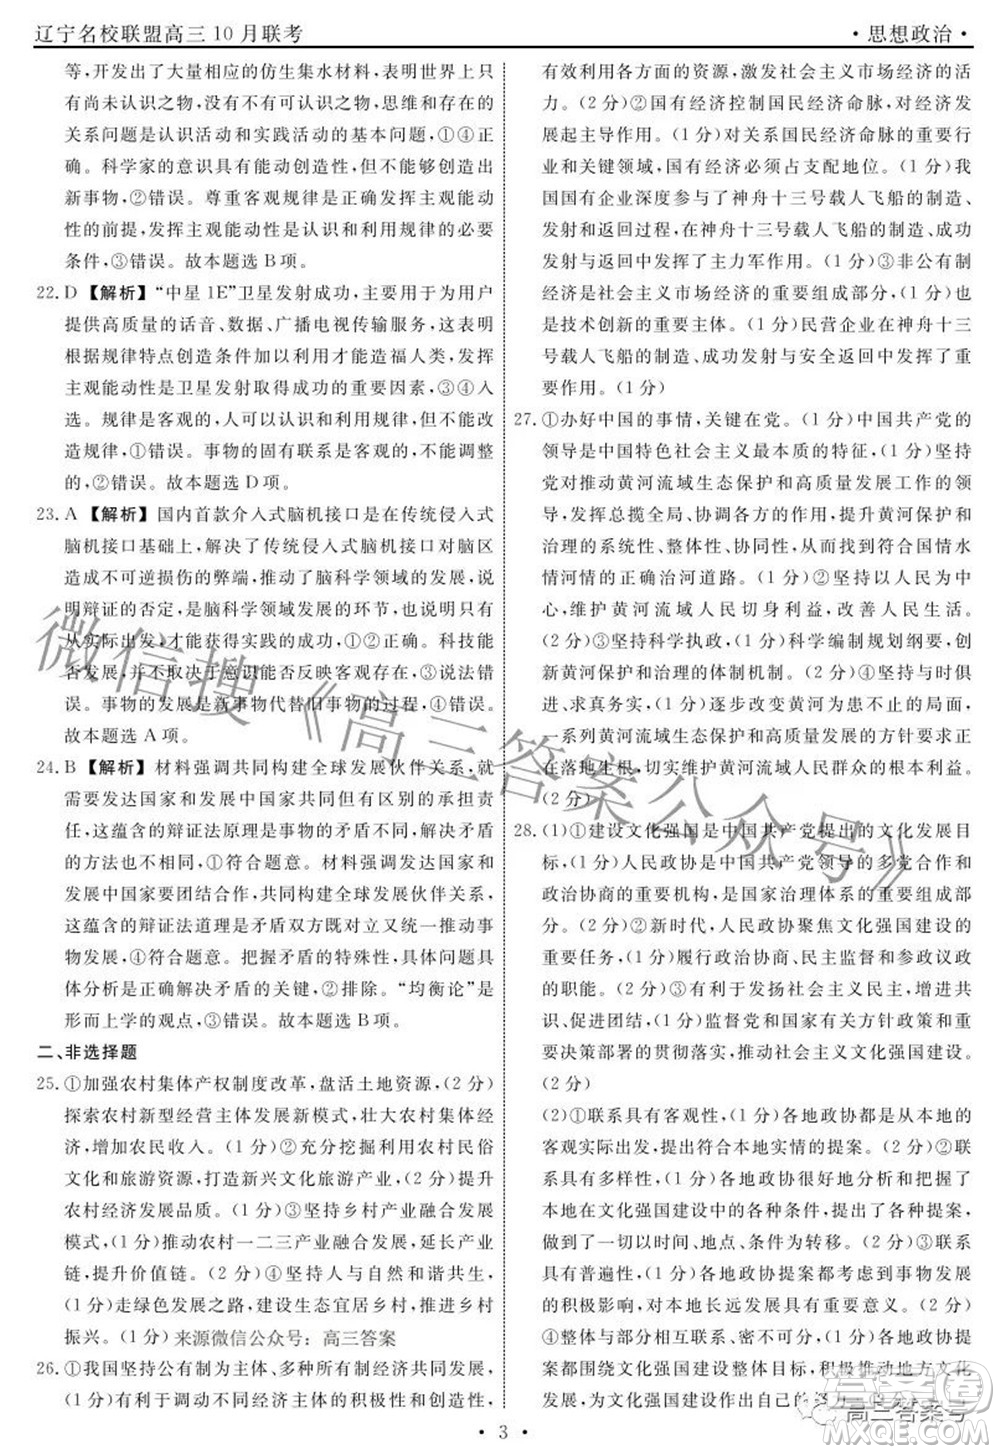 辽宁名校联盟高三10月联考
·思想政治·
等,开发出了大量相应的仿生集水材料,表明世界上只
有尚未认识之物,没有不可认识之物,思维和存在的
关系问题是认识活动和实践活动的基本问题,①④正
确。科学家的意识具有能动创造性,但不能创造出
新事物,②错误。尊重客观规律是正确发挥主观能动
性的前提,发挥主观能动性是认识和利用规律的必要
条件,③错误。故本题选B项。
22.D【解析】“中星1E”卫星发射成功,主要用于为用户
提供高质量的话音、数据、广播电视传输服务,这表明
根据规律特点创造条件加以利用才能造福人类,发挥
主观能动性是卫星发射取得成功的重要因素,③④入
选。规律是客观的,人可以认识和利用规律,但不能改
造规律,①错误。事物的固有联系是客观的,不能创
造,②错误。故本题选D项。
23.A【解析】国内首款介入式脑机接口是在传统侵入式
脑机接口基础上,解决了传统侵入式脑机接口对脑区
造成不可逆损伤的弊端,推动了脑科学领域的发展,说
明辩证的否定,是脑科学领域发展的环节,也表明只有
从实际出发,才能获得实践的成功,①②正确。科技能
否发展,并不取决于意识能否反映客观存在,③说法错
误。事物的发展是新事物代替旧事物的过程,④错误。
故本题选A项。
24.B【解析】材料强调共同构建全球发展伙伴关系,就
需要发达国家和发展中国家共同但有区别的承担责
任,这蕴含的辩证法原理是事物的矛盾不同,解决矛盾
的方法也不相同,①符合题意。材料强调发达国家和
发展中国家要团结合作,共同构建全球发展伙伴关系,
这蕴含的辩证法道理是矛盾双方既对立又统一推动事
物发展,④符合题意。②强调矛盾的特殊性,具体问题
具体分析是正确解决矛盾的关键,②排除。“均衡论”是
形而上学的观点,③错误。故本题选B项。
二、非选择题
25.①加强农村集体产权制度改革,盘活土地资源,(2分)
探索农村新型经营主体发展新模式,壮大农村集体经
济,增加农民收入。(1分)②充分挖掘利用农村民俗
文化和旅游资源,(2分)发展特色文化和旅游产业,为
农村经济发展提供动力。(1分)③坚持乡村产业融合
发展,(2分)推动农村一二三产业融合发展,延伸产业
链,提升价值链。(1分)④坚持人与自然和谐共生,
(1分)走绿色发展之路,建设生态宜居乡村,推进乡村
振兴。(1分)来源微信公众号:高三答案
26.①我国坚持公有制为主体、多种所有制经济共同发展,
(1分)有利于调动不同经济主体的积极性和创造性,
有效利用各方面的资源,激发社会主义市场经济的活
力。(2分)②国有经济控制国民经济命脉,对经济发
展起主导作用。(1分)对关系国民经济命脉的重要行
业和关键领域,国有经济必须占支配地位。(1分)我
国国有企业深度参与了神舟十三号载人飞船的制造、
发射和回收过程,在神舟十三号载人飞船的制造、发
射和返回中发挥了主力军作用。(1分)③非公有制
经济是社会主义市场经济的重要组成部分,(1分)也
是技术创新的重要主体。(1分)民营企业在神舟十三
号载人飞船的制造、成功发射与安全返回中发挥了重
要作用。(1分)
27.①办好中国的事情,关键在党。(1分)中国共产党的
领导是中国特色社会主义最本质的特征,(1分)坚持
党对推动黄河流域生态保护和高质量发展工作的领
导,发挥总揽全局、协调各方的作用,提升黄河保护和
治理的系统性、整体性、协同性,(1分)找到符合国情水
情河情的正确治河道路。(1分)②坚持以人民为中
心,维护黄河流域人民切身利益,改善人民生活。
(2分)③坚持科学执政,(1分)科学编制规划纲要,创
新黄河保护和治理的体制机制。(2分)④坚持与时俱
进、求真务实,(1分)逐步改变黄河为患不止的局面,
一系列黄河流域生态保护和发展的方针要求正
在落地生根,切实维护黄河流域人民群众的根本利益。
(2分)
28.(1)①建设文化强国是中国共产党提出的文化发展目
标,(1分)人民政协是中国共产党领导的多党合作和
政治协商的重要机构,是国家治理体系的重要组成部
分。(2分)②新时代,人民政协聚焦文化强国建设的
重要任务,(1分)履行政治协商、民主监督和参政议政
的职能。(2分)③有利于发扬社会主义民主,增进共
识、促进发展,(1分)监督党和国家有关方针政策和重
要决策部署的贯彻落实,推动社会主义文化强国建设。
(2分)
(2)①联系具有客观性,(1分)各地政协都是从本地的
客观实际出发,提出符合本地实情的提案。(2分)②联
系具有多样性,(1分)各地政协很好地分析和把握了
本地在文化强国建设中的各种条件,提出的提案,做
到了一切以时间、地点、条件为转移。(2分)③联系
具有普遍性,(1分)各地政协提案都看到了事物发展
的积极影响,实现本地长足发展的举措。(2分)
④整体与部分相互联系、密不可分,(1分)各地政协提
案都围绕文化强国建设展开,积极推动地方文化
发展,为文化强国建设作出自己的努力。(2分)
·3·
微信搜《高三答案公众号》
高三答案号
答案圈
MXQE.COM